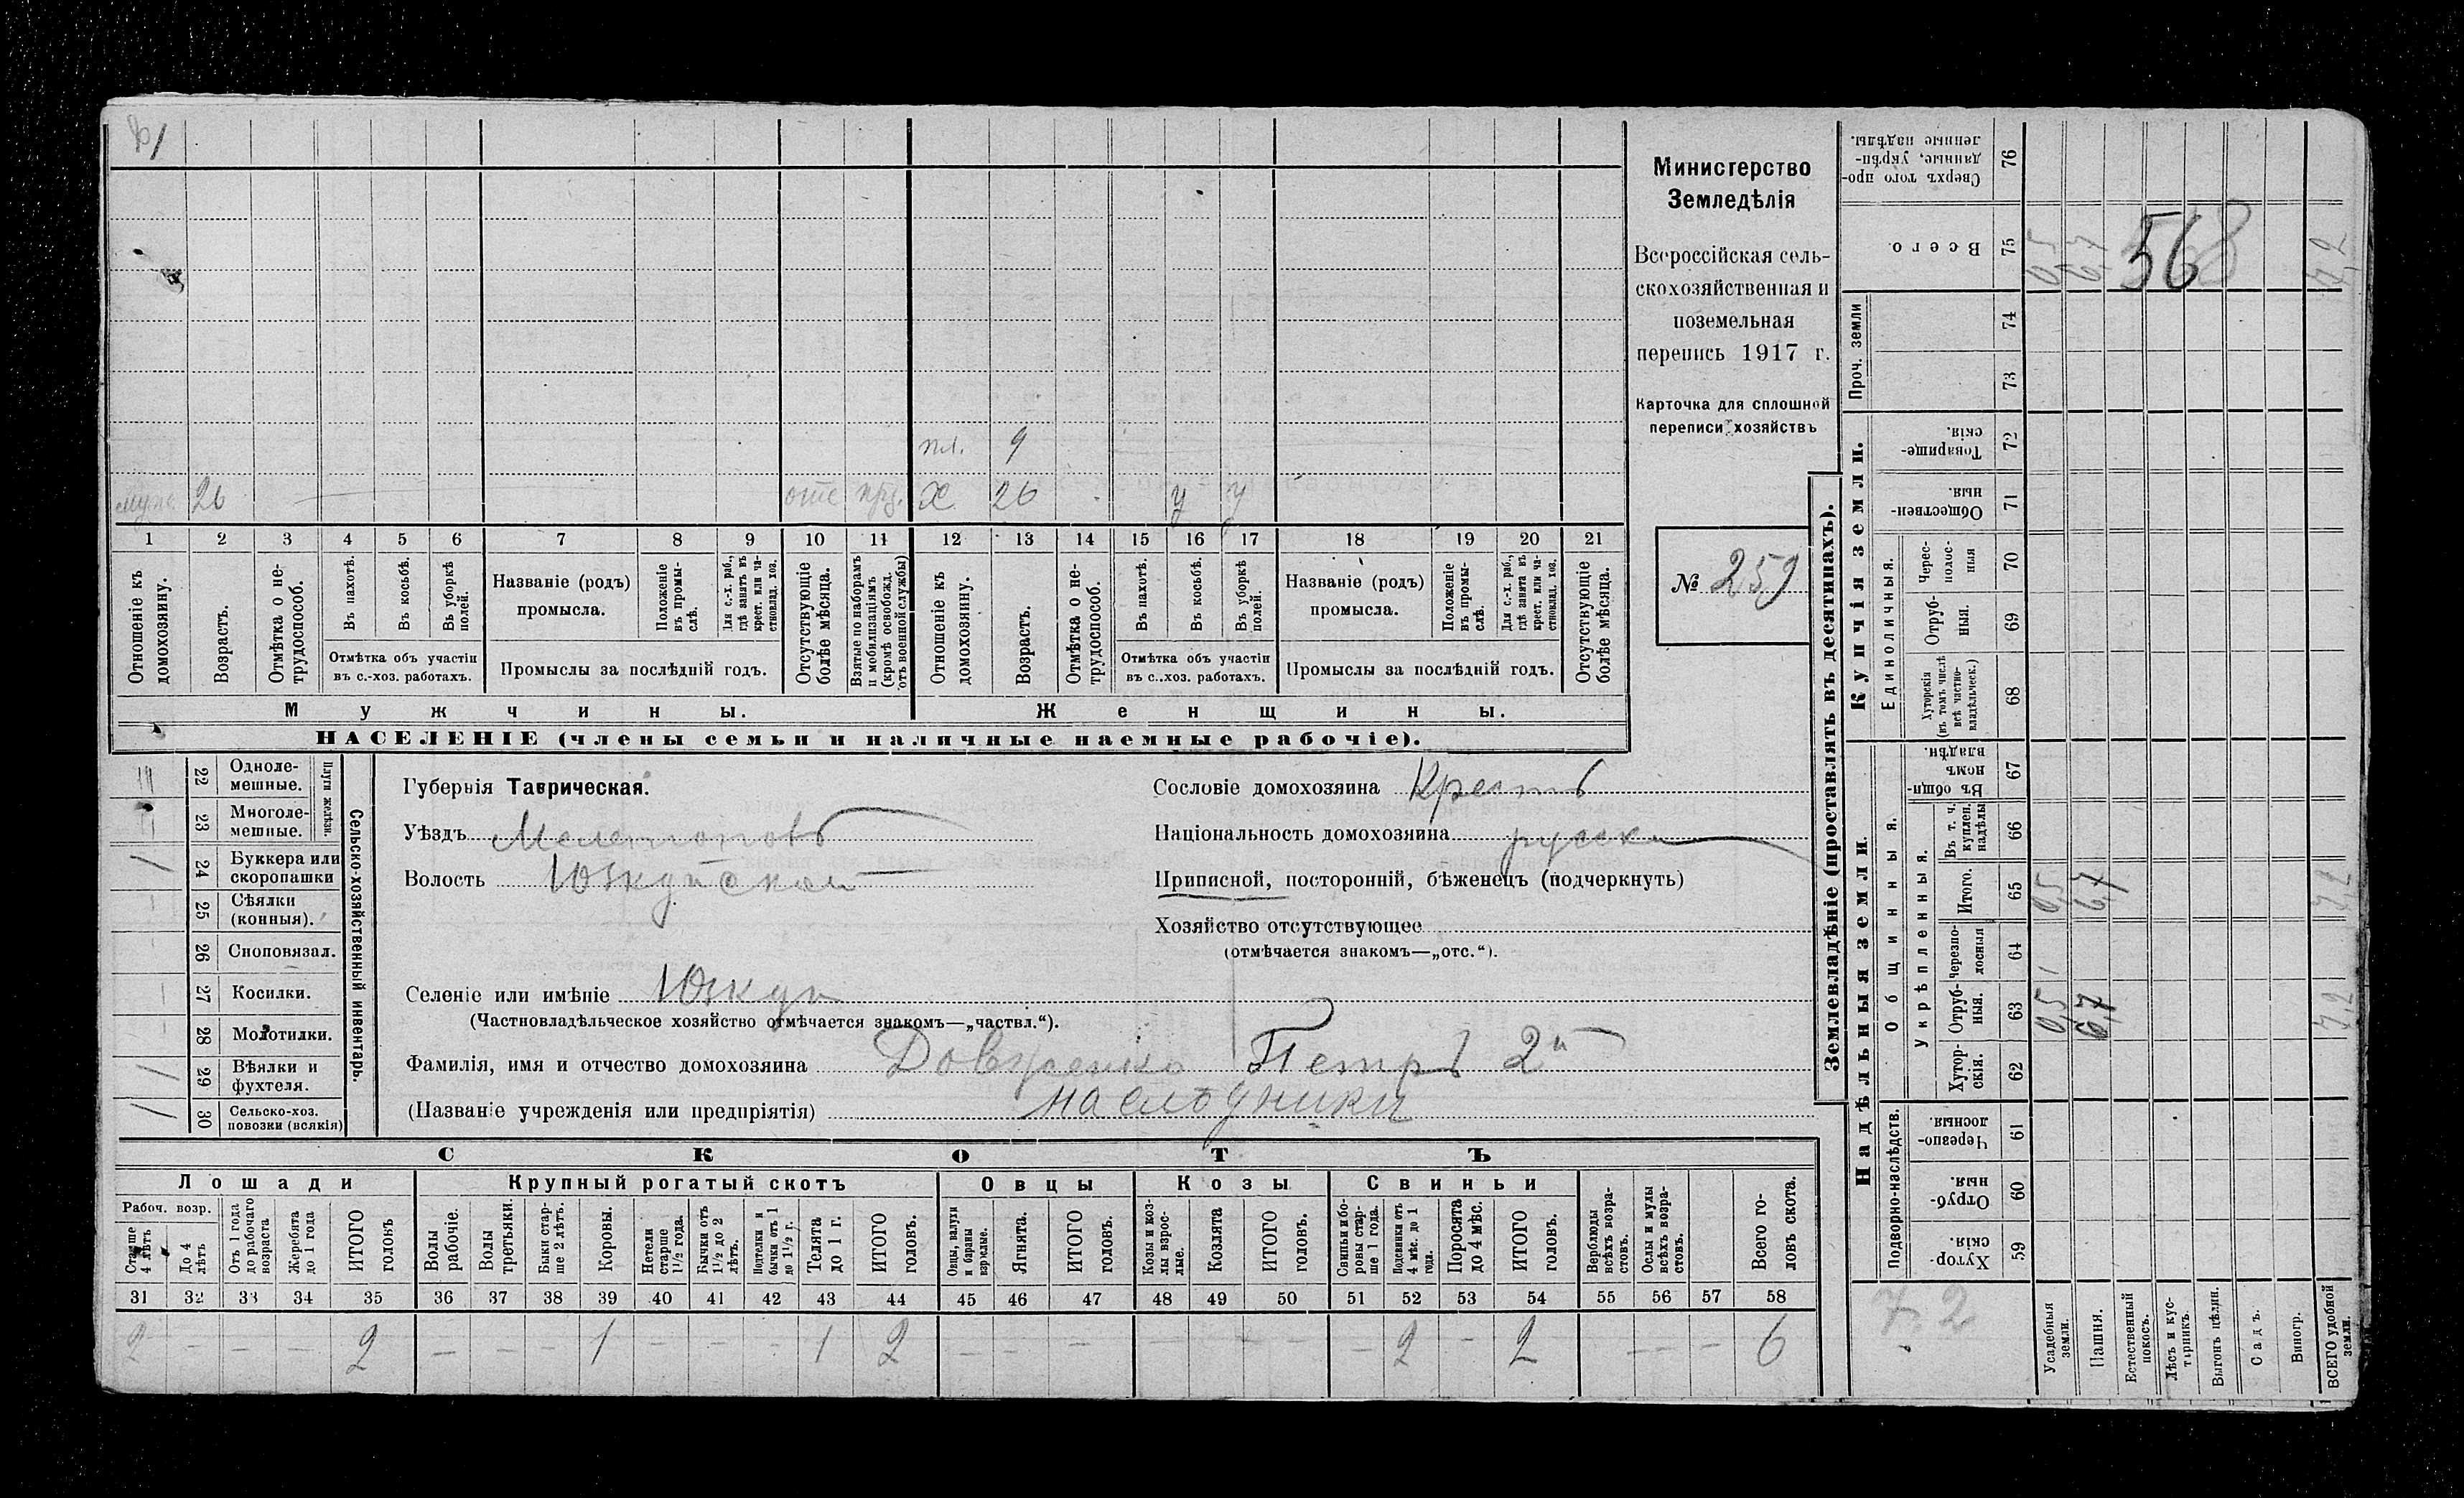 Министерство
Земледѣлія
Всероссійская сель-
скохозяйственная и
поземельная
перепись 1917 г.
Карточка для сплошной
переписи хозяйствъ
№ 259
пл. 9
муж. 26 отс Х 26 у у
1 2 3 4 5 6 7 8 9 10 11 12 13 14 15 16 17 18 19 20 21
Отношеніе къ домохозяину.
Возрастъ.
Отмѣтка о не-трудоспособ.
Въ пахотѣ.
Въ косьбѣ.
Въ уборкѣ полей.
Отмѣтка объ участіи
въ с.-хоз. работахъ.
Названіе (родъ)
промысла.
Положеніе въ промы-слѣ.
Для с.-х. раб., гдѣ занятъ въ крест. или ча-стновлад. хоз.
Промыслы за послѣдній годъ.
Отсутствующіе болѣе мѣсяца.
Взятые по наборамъ и мобилизаціямъ (кромѣ освобожд. отъ военной службы)
Отношеніе къ домохозяину.
Возрастъ.
Отмѣтка о не-трудоспособ.
Въ пахотѣ.
Въ косьбѣ.
Въ уборкѣ полей.
Отмѣтка объ участіи
въ с..хоз. работахъ.
Названіе (родъ)
промысла.
Положеніе въ промы-слѣ.
Для с.-х. раб., гдѣ занята въ крест. или ча-стновлад. хоз.
Промыслы за послѣдній годъ.
Отсутствующіе болѣе мѣсяца.
Мужчины.
Женщины.
НАСЕЛЕНІЕ (члены семьи и наличные наемные рабочіе).
Сельско-хозяйственный инвентарь.
Плуги желѣзн.
22 Одноле-мешные.
23 Многоле-мешные.
24 Буккера или скоропашки
25 Сѣялки (конныя).
26 Сноповязал.
27 Косилки.
28 Молотилки.
29 Вѣялки и фухтеля.
30 Сельско-хоз. повозки (всякія)
Губернія Таврическая.
Уѣздъ Мелитопов
Волость Юзкуйской
Селеніе или имѣніе Юзкуи
(Частновладѣльческое хозяйство отмѣчается знакомъ—„частвл.“).
Фамилія, имя и отчество домохозяина Довженко Петръ 2й
(Названіе учрежденія или предпріятія) наслѣдники
Сословіе домохозяина Крестъ
Національность домохозяина русск
Приписной, посторонній, бѣженецъ (подчеркнуть)
Хозяйство отсутствующее
(отмѣчается знакомъ—„отс.“).
СКОТЪ
Лошади
Крупный рогатый скотъ
Овцы
Козы
Свиньи
Рабоч. возр.
Старше 4 лѣтъ
До 4 лѣтъ
Отъ 1 года до рабочаго возраста
Жеребята до 1 года
ИТОГО головъ
Волы рабочіе.
Волы третьяки.
Быки стар-ше 2 лѣтъ.
Коровы.
Нетели старше 1½ года.
Бычки отъ 1½ до 2 лѣтъ.
Подтелки и бычки отъ 1 до 1½ г.
Телята до 1 г.
ИТОГО головъ.
Овцы, валухи и бараны взрослые.
Ягнята.
ИТОГО головъ.
Козы и коз-лы взрос-лые.
Козлята
ИТОГО головъ.
Свиньи и бо-ровы стар-ше 1 года.
Подсвинки отъ 4 мѣс. до 1 года.
Поросята до 4 мѣс.
ИТОГО головъ.
Верблюды всѣхъ возра-стовъ.
Ослы и мулы всѣхъ возра-стовъ.
Всего го-ловъ скота.
31 32 33 34 35 36 37 38 39 40 41 42 43 44 45 46 47 48 49 50 51 52 53 54 55 56 57 58
2 — — — 2 — — — 1 — — — 1 2 — — — — — — — 2 — 2 — — — 6
Землевладѣніе (проставлять въ десятинахъ).
Надѣльныя земли.
Купчія земли.
Проч. земли
Подворно-наслѣдств.
Общинныя.
Укрѣпленныя.
Единоличныя.
Хутор-скія. 59
Отруб-ныя. 60
Черезпо-лосныя 61
Хутор-скія. 62
Отруб-ныя. 63
Черезпо-лосныя 64
Итого. 65
Въ т. ч. куплен. надѣлы 66
Въ общи-номъ владѣн. 67
Хуторскія (въ томъ числѣ всѣ частно-владѣльческ.) 68
Отруб-ныя. 69
Черес-полос-ныя 70
Обществен-ныя. 71
Товарище-скія. 72
73
74
Всего. 75
Сверхъ того про-данные, укрѣп-ленные надѣлы. 76
Усадебныя земли.
Пашня.
Естественный покосъ.
Лѣсъ и кус-тарникъ.
Выгонъ цѣлин.
Садъ.
Виногр.
ВСЕГО удобной земли.
0,5 6,7 7,2
0,5 6,7 7,2
0,5 6,7 7,2
568
7.2